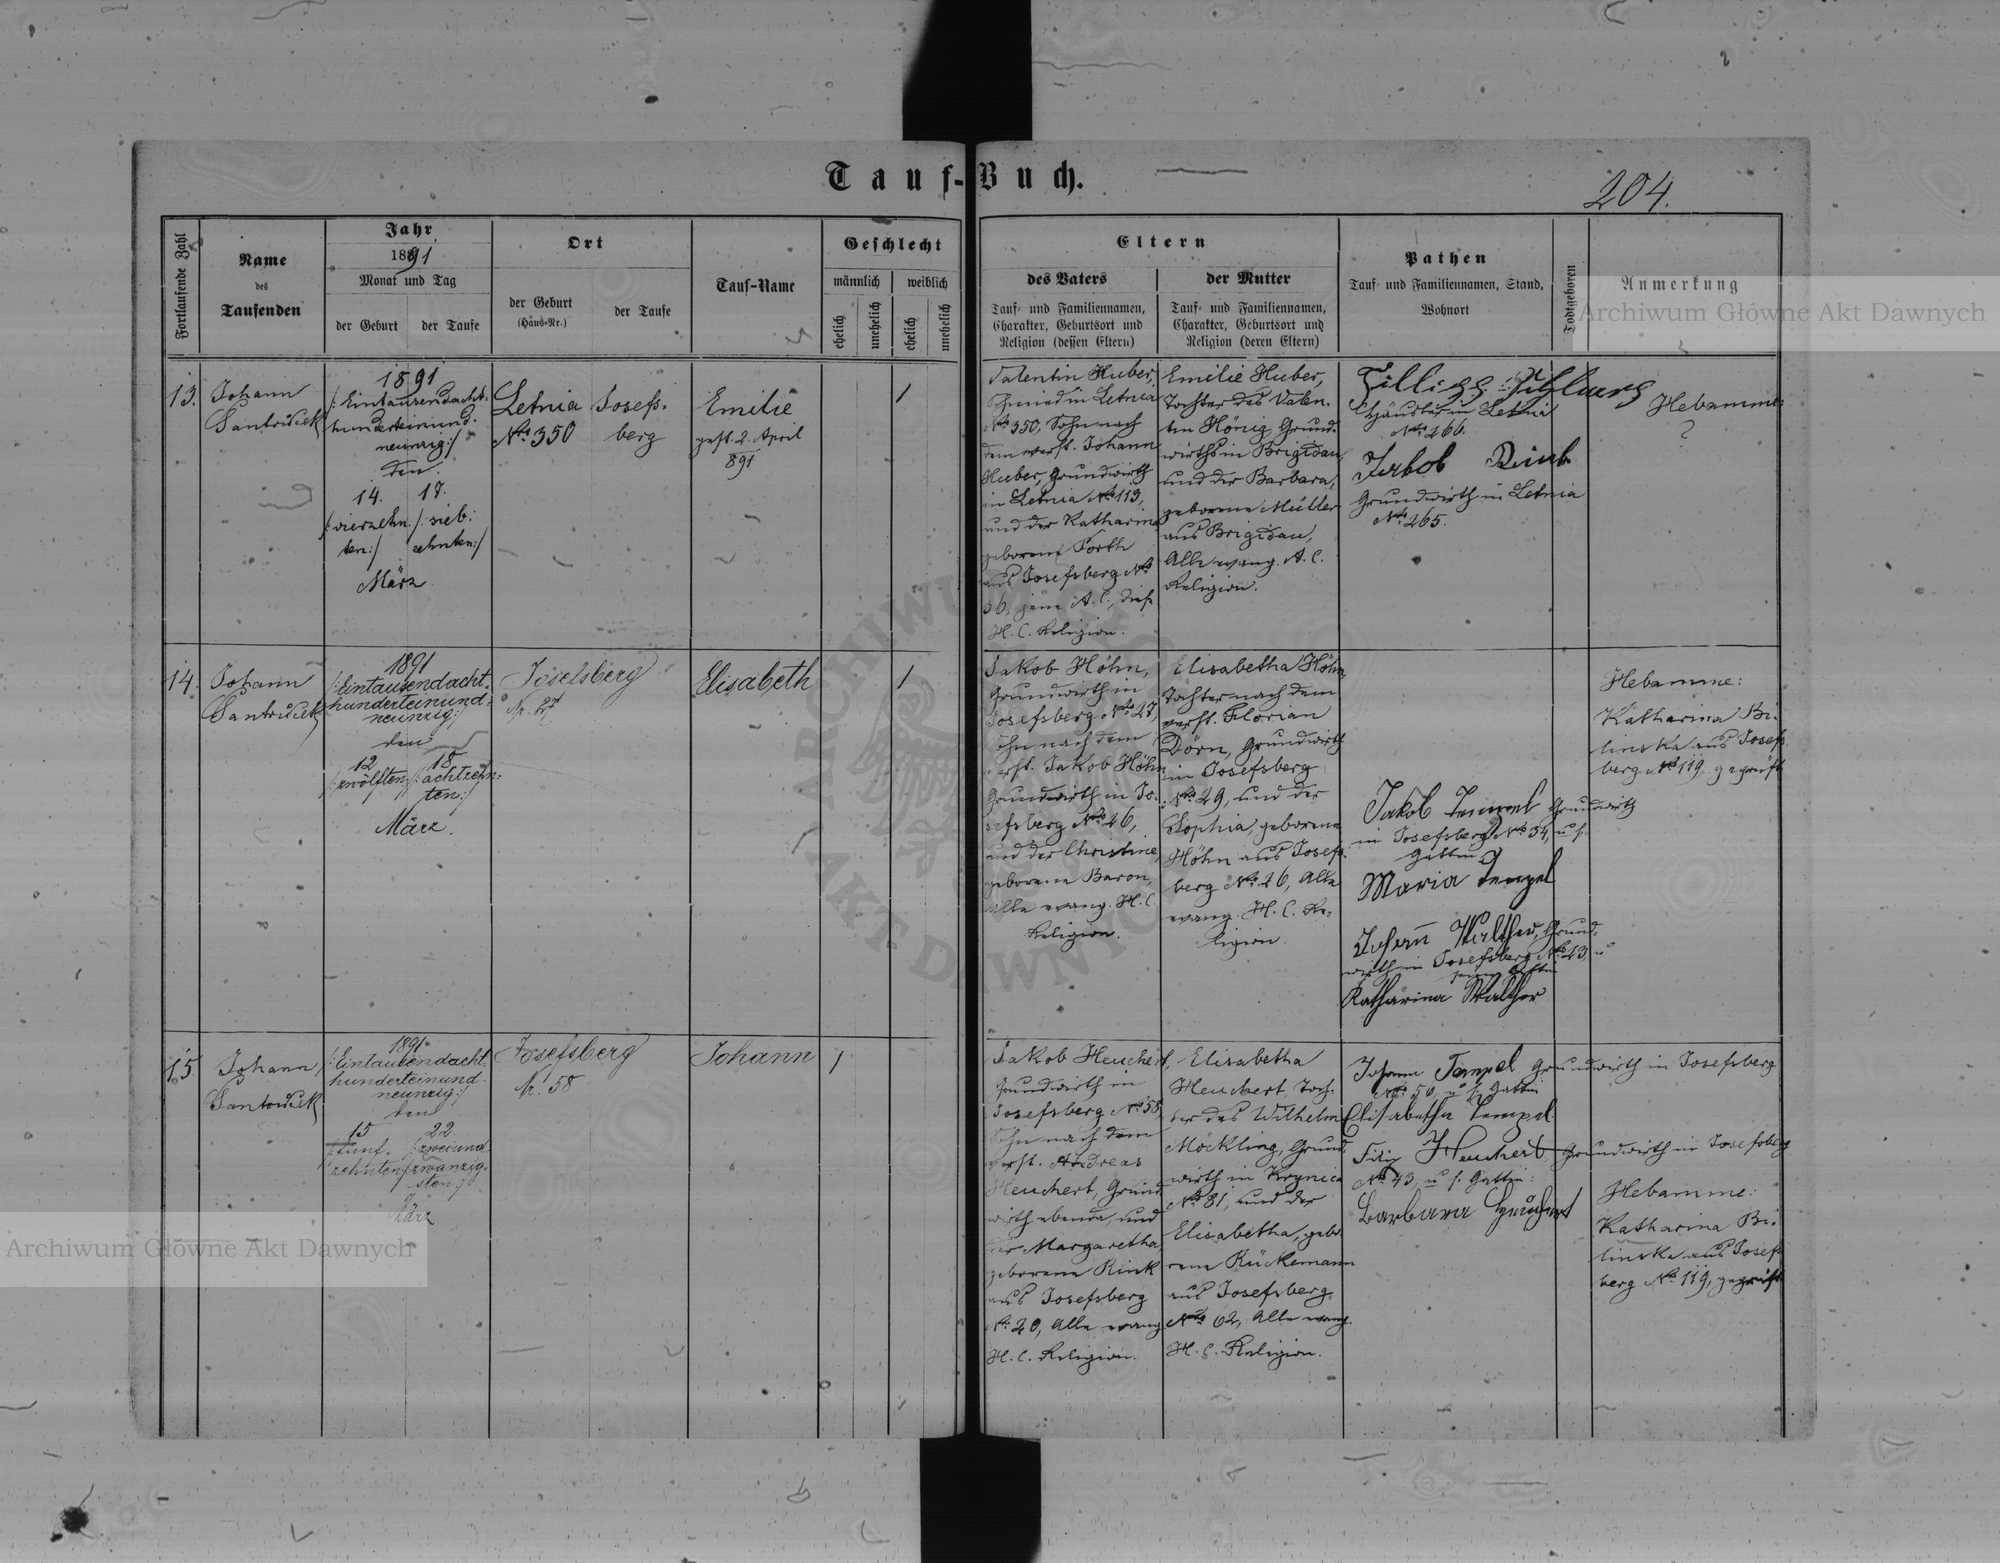 Tauf-Buch.
204.
Fortlaufende Zahl
Name
des
Taufenden
Jahr
1891
Monat und Tag
der Geburt
der Taufe
Ort
der Geburt
(Haus-Nr.)
der Taufe
Tauf-Name
Geschlecht
männlich
weiblich
ehelich
unehelich
ehelich
unehelich
Eltern
des Vaters
Tauf- und Familiennamen,
Charakter, Geburtsort und
Religion (dessen Eltern)
der Mutter
Tauf- und Familiennamen,
Charakter, Geburtsort und
Religion (deren Eltern)
Pathen
Tauf- und Familiennamen, Stand,
Wohnort
Todtgeboren
Anmerkung
Archiwum Główne Akt Dawnych
13.
Johann
1891
/: Eintausendacht-
hunderteinund-
neunzig :/
den
14. 17.
/: vierzehn- /: sieb-
ten :/ zehnten :/
März
Letnia
No 350
Josefs-
berg
Emilie
gest. 2. April
891
1
Valentin Huber,
Schmied in Letnia
No 350, Sohn nach
dem verst. Johann
Huber, Grundwirth
in Letnia No 113,
und der Katharina
geborene Porth
aus Josefsberg No
36, jene A. C., diese
H. C. Religion.
Emilie Huber,
Tochter des Valen-
tin Hönig Grund-
wirths in Brigidau
und der Barbara,
geborene Müller
aus Brigidau,
Alle evang. A. C.
Religion.
Häusler in Letnia
No 266.
Jakob
Grundwirth in Letnia
No 265.
Hebamme:
?
14.
Johann
1891
/: Eintausendacht-
hunderteinund-
neunzig :/
den
12 18
/: zwölften :/ /: achtzehn-
ten :/
März.
Josefsberg
Nr. 27
Elisabeth
1
Jakob Höhn,
Grundwirth in
Josefsberg No 27,
Sohn nach dem
verst. Jakob Höhn
Grundwirth in Jo-
sefsberg No 26,
und der Christine,
geborene Baron,
Alle evang. H. C.
Religion.
Elisabetha Höhn
Tochter nach dem
verst. Florian
Dörn, Grundwirth
in Josefsberg
No 29, und der
Sophia, geborene
Höhn aus Josefs-
berg No 26, Alle
evang. H. C. Re-
ligion
Jakob Tempel Grundwirth
in Josefsberg No 34, u. s.
Gattin
Maria Tempel
Johann Walther, Grund-
wirth in Josefsberg No 43, u
seine Gattin
Katharina Walther
Hebamme:
Katharina Bi-
linska aus Josefs-
berg No 119, geprüft
15
Johann
1891
/: Eintausendacht-
hunderteinund-
neunzig :/
den
15 22.
/: fünf- /: zweiund-
zehnten :/ zwanzig-
sten :/
März
Josefsberg
Nr. 58
Johann
1
Jakob Heuchert,
Grundwirth in
Josefsberg No 58
Sohn nach dem
verst. Andreas
Heuchert, Grund-
wirth ebenda, und
der Margaretha,
geborene Rink
aus Josefsberg
No 20, Alle evang
H. C. Religion.
Elisabetha
Heuchert Toch-
ter des Wilhelm
Möckling, Grund-
wirth in Krynica
No 81, und der
Elisabetha, gebo-
rene Rückemann
aus Josefsberg
No 62, Alle evang.
H. C. Religion.
Johann Tempel Grundwirth in Josefsberg
No 50, u. s. Gattin
Elisabetha Tempel
Filip Heuchert Grundwirth in Josefsberg
No 43, u. s. Gattin:
Barbara Heuchert
Hebamme:
Katharina Bi-
linska aus Josefs-
berg No 119, geprüft
Archiwum Główne Akt Dawnych